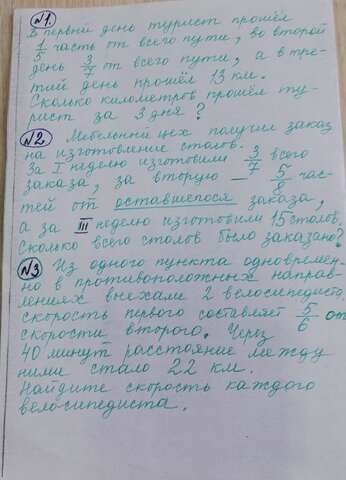 №1.
В первый день турист прошёл
1/5 часть от всего пути, во второй
день 3/7 от всего пути, а в тре-
тий день прошёл 13 км.
Сколько километров прошёл ту-
рист за 3 дня?
№2 Мебельный цех получил заказ
на изготовление столов.
За I неделю изготовили 3/7 всего
заказа, за вторую – 5/8 час-
тей от оставшегося заказа,
а за III неделю изготовили 15 столов.
Сколько всего столов было заказано?
№3 Из одного пункта одновремен-
но в противоположных направ-
лениях выехали 2 велосипедиста,
скорость первого составляет 5/6 от
скорости второго. Через
40 минут расстояние между
ними стало 22 км.
Найдите скорость каждого
велосипедиста.